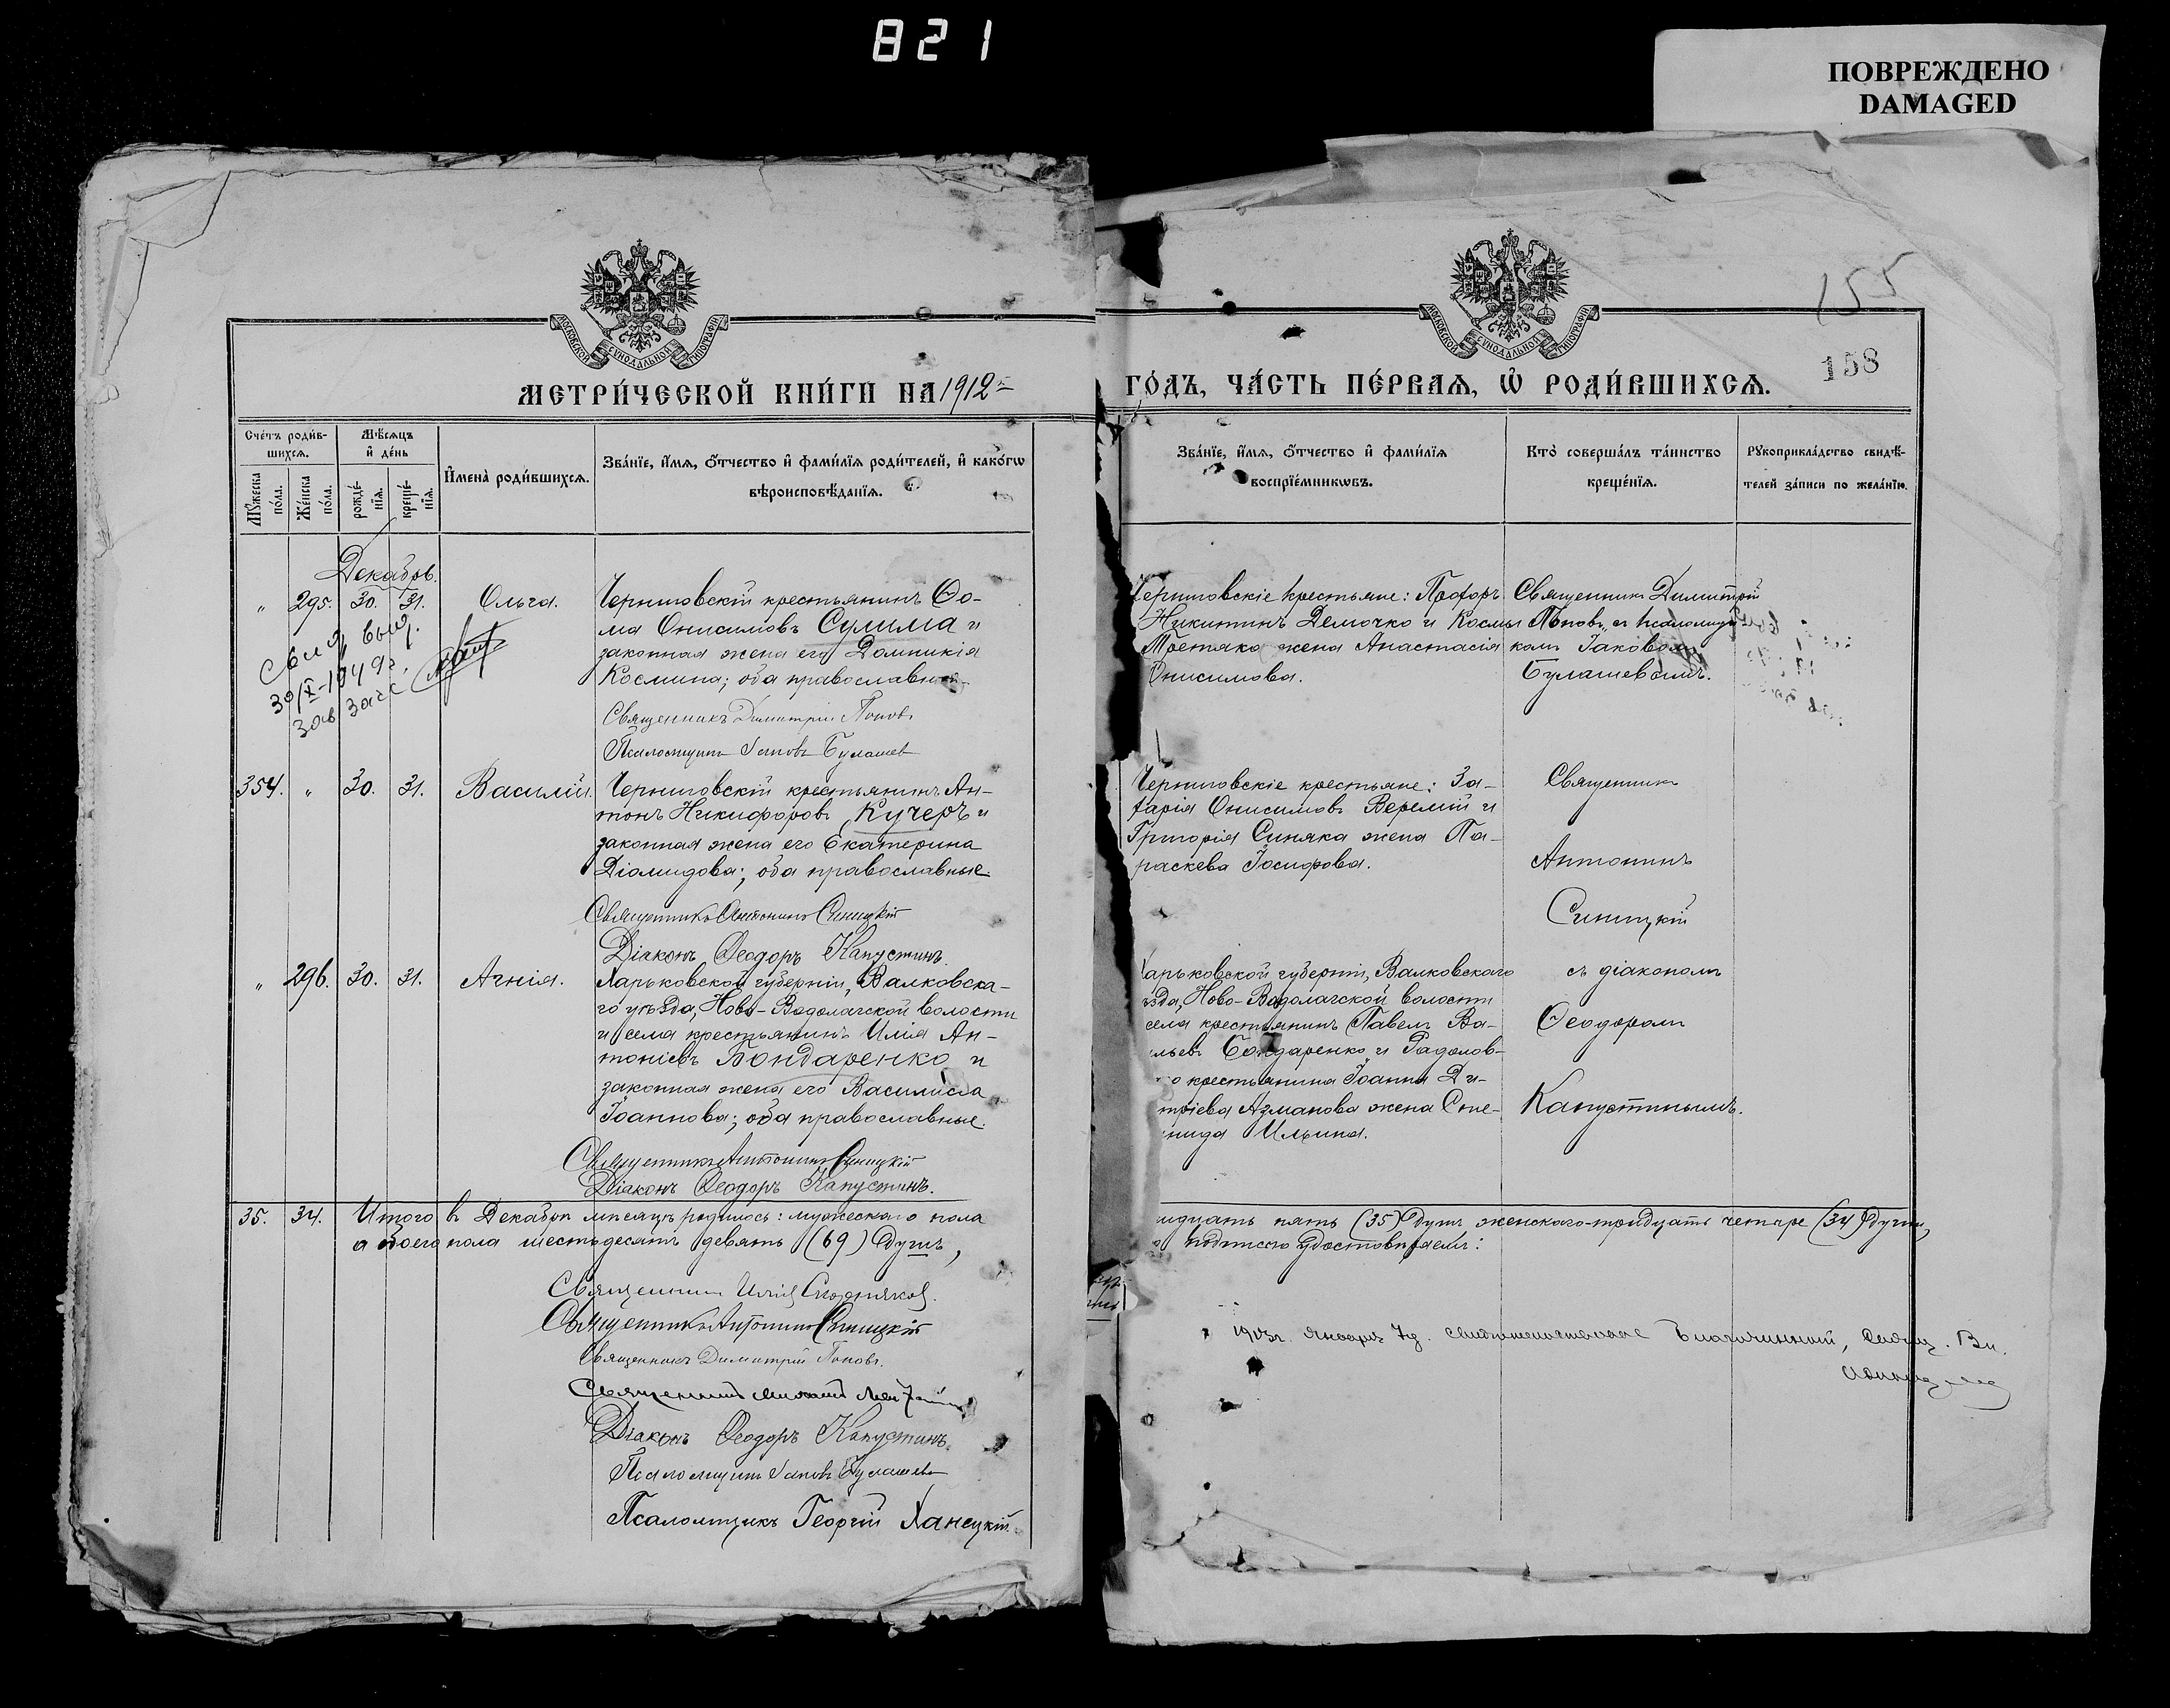 821
ПОВРЕЖДЕНО
DAMAGED
155
158
МОСКОВСКОЙ СѴНОДАЛЬНОЙ ТИПОГРАФІИ
МОСКОВСКОЙ СѴНОДАЛЬНОЙ ТИПОГРАФІИ
МЕТРИ́ЧЕСКОЙ КНИ́ГИ НА 1912
ГО́ДЪ, ЧА́СТЬ ПЕ́РВАѦ, Ѡ҆ РОДИ́ВШИХСѦ.
Сче́тъ роди́в-
шихсѧ.
Мѣ́сѧцъ
и҆ де́нь
Мꙋ́жеска
по́ла.
Же́нска
по́ла.
рожде́-
нїѧ.
креще́-
нїѧ.
И҆мена̀ роди́вшихсѧ.
Зва́нїе, и҆́мѧ, ѻ҆́тчество и҆ фами́лїѧ роди́телей, и҆ како́гѡ
вѣроисповѣ́данїѧ.
Зва́нїе, и҆́мѧ, ѻ҆́тчество и҆ фами́лїѧ
воспрїе́мникѡвъ.
Кто̀ соверша́лъ та́инство
креще́нїѧ.
Рꙋкоприкла́дство свидѣ́-
телей за́писи по жела́нїю.
Декабрь.
" 295. 30. 31. Ольга.
Черниговскій крестьянинъ Ѳо-
ма Онисимовъ Сулима и
законная жена его Домникія
Космина; оба православные.
Священникъ Димитрій Поповъ
Псаломщикъ Іаковъ Булашев
Свид. выд.
30/X-1949г.
Зав Загс.
Черниговскіе крестьяне: Прохоръ
Никитинъ Демочко и Космы
Третяко жена Анастасія
Онисимова.
Священникъ Димитрій
Поповъ съ псаломщи-
комъ Іаковомъ
Булашевымъ.
354. " 30. 31. Василій.
Черниговскій крестьянинъ Ан-
тонъ Никифоровъ Кучеръ и
законная жена его Екатерина
Діомидова; оба православные.
Священникъ Антонинъ Синицкій
Діаконъ Ѳеодоръ Капустинъ.
Черниговскіе крестьяне: За-
харія Онисимовъ Веремій и
Григорія Синяка жена Па-
раскева Іосифова.
Священникъ
Антонинъ
Синицкій
съ діакономъ
Ѳеодоромъ
Капустинымъ.
" 296. 30. 31. Агнія.
Харьковской губерніи, Валковска-
го уѣзда, Ново-Водолагской волости
и села крестьянинъ Илія Ан-
тоніевъ Бондаренко и
законная жена его Василисса
Іоаннова; оба православные.
Священникъ Антонинъ Синицкій
Діаконъ Ѳеодоръ Капустинъ.
арьковской губерніи, Валковскаго
ѣзда, Ново-Водолагской волости
села крестьянинъ Павелъ Ва-
ильевъ Бондаренко и Радолов-
го крестьянина Іоанна Ди-
трiева Азманова жена Сте-
нида Ильина.
35. 34. Итого въ Декабрѣ мѣсяцѣ родилось: мужескаго пола
идцать пять (35) душъ женскаго-тридцать четыре (34) души,
а обоего пола шестьдесятъ девять (69) душъ,
подписью удостовѣряемъ:
Священникъ Илія
Священникъ Антонинъ Синицкій
Священникъ Димитрій Поповъ.
Священникъ Михаилъ
Діаконъ Ѳеодоръ Капустинъ.
Псаломщикъ Іаковъ Булашев
Псаломщикъ Георгій Ханецкій.
1913г. Января 7д. свидѣтельствовалъ Благочинный, Свящ. Вл.